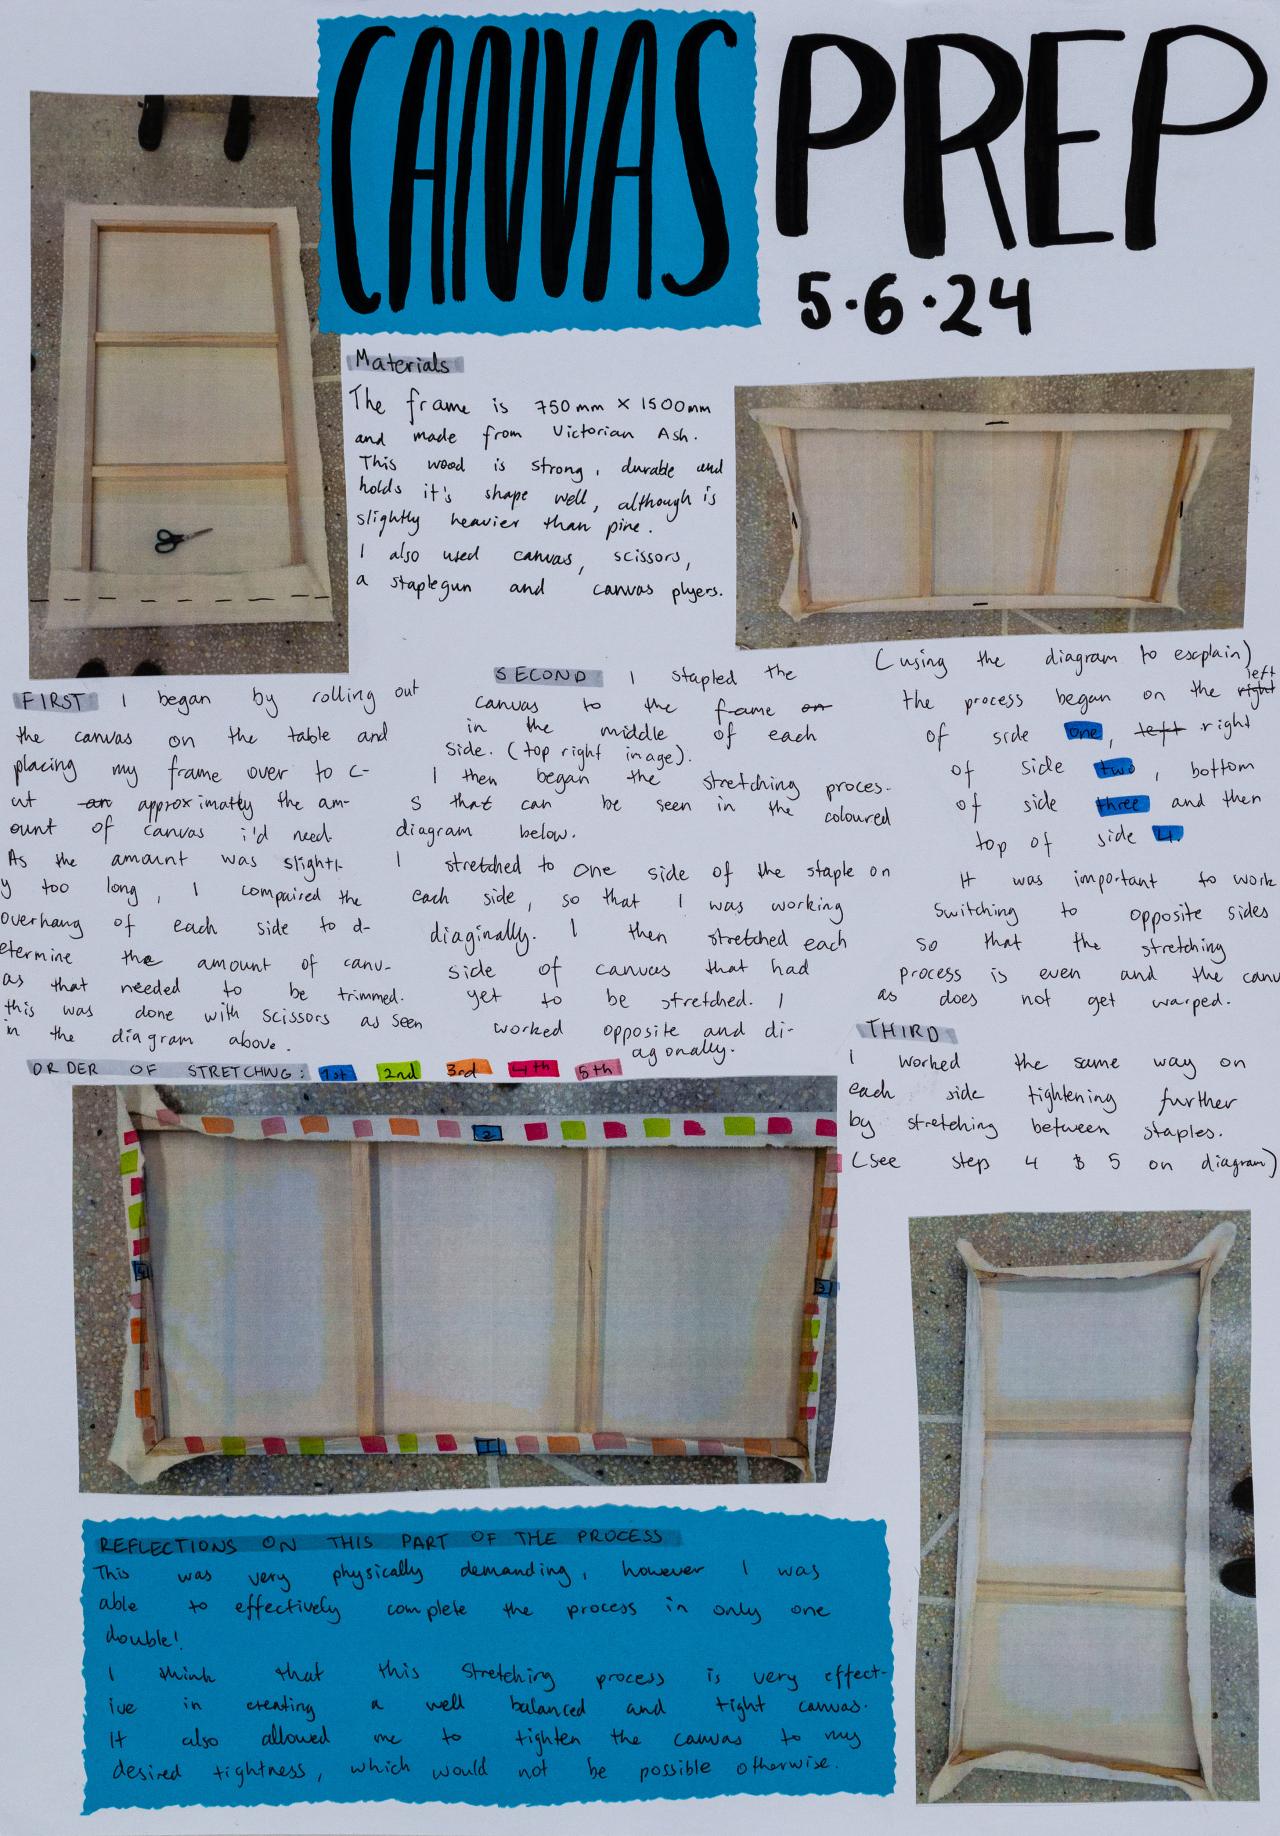 CANVAS PREP
5.6.24
Materials
The frame is 750mm × 1500mm
and made from Victorian Ash.
This wood is strong, durable and
holds it's shape well, although is
slightly heavier than pine.
I also used canvas, scissors,
a staplegun and canvas plyers.
FIRST I began by rolling out
the canvas on the table and
placing my frame over to c-
ut an approximatly the am-
ount of canvas i'd need.
As the amount was slightl-
y too long, I compaired the
overhang of each side to d-
etermine the amount of canv-
as that needed to be trimmed.
this was done with scissors as seen
in the diagram above.
SECOND I stapled the
canvas to the frame on
in the middle of each
side. (top right image).
I then began the stretching proces-
s that can be seen in the coloured
diagram below.
I stretched to one side of the staple on
each side, so that I was working
diaginally. I then stretched each
side of canvas that had
yet to be stretched. I
worked opposite and di-
agonally.
(using the diagram to esxplain)
left
the process began on the right
of side one, left right
of side two, bottom
of side three and then
top of side 4.
It was important to work
switching to opposite sides
so that the stretching
process is even and the canv
as does not get warped.
THIRD
I worked the same way on
each side tightening further
by stretching between staples.
(see steps 4 & 5 on diagram)
ORDER OF STRETCHING: 1st 2nd 3rd 4th 5th
2
4
3
1
REFLECTIONS ON THIS PART OF THE PROCESS
This was very physically demanding, however I was
able to effectively complete the process in only one
double!
I think that this stretching process is very effect-
ive in creating a well balanced and tight canvas.
It also allowed me to tighten the canvas to my
desired tightness, which would not be possible otherwise.